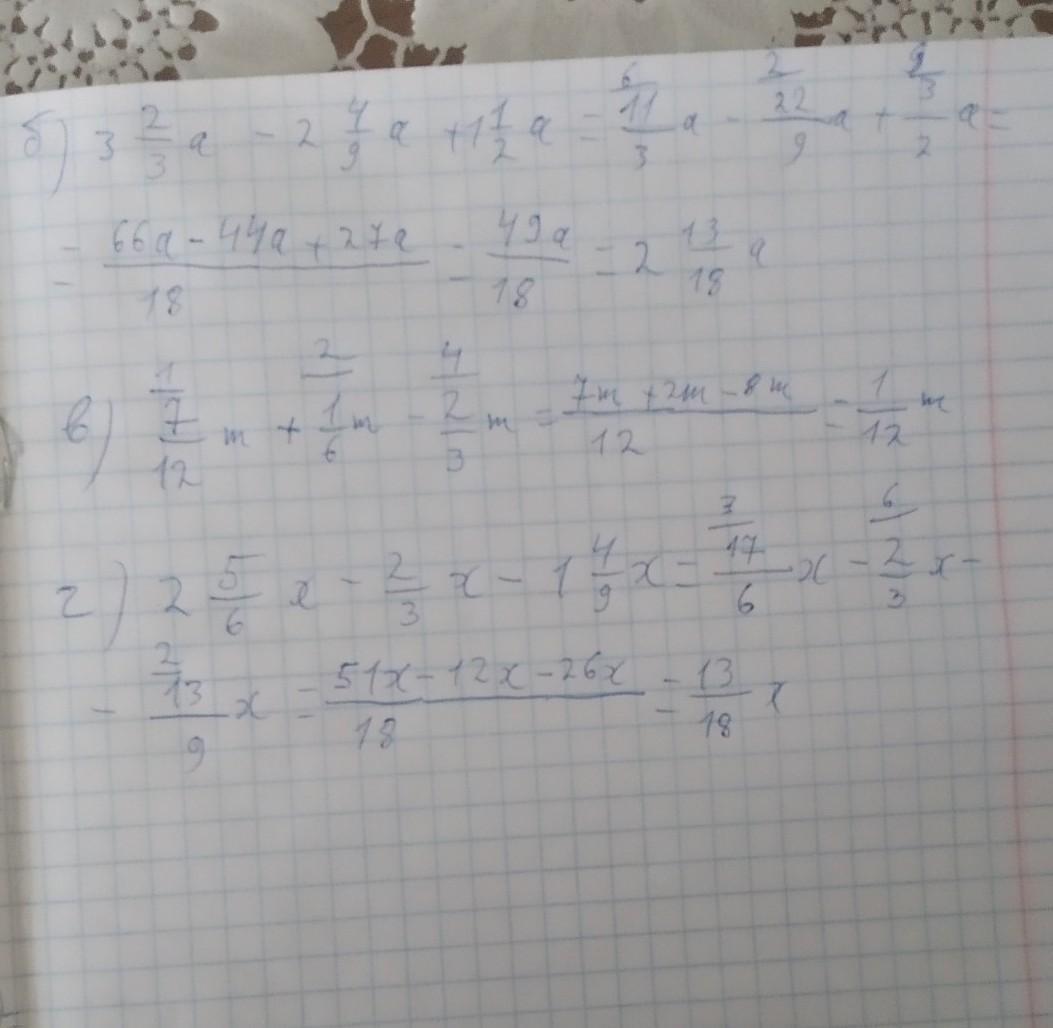 б) 3 2/3 a - 2 4/9 a + 1 1/2 a = 11/3 (6) a - 22/9 (2) a + 3/2 (9) a =
= (66a - 44a + 27a)/18 = 49a/18 = 2 13/18 a
в) 7/12 (1) m + 1/6 (2) m - 2/3 (4) m = (7m + 2m - 8m)/12 = 1/12 m
г) 2 5/6 x - 2/3 x - 1 4/9 x = 17/6 (3) x - 2/3 (6) x -
- 13/9 (2) x = (51x - 12x - 26x)/18 = 13/18 x